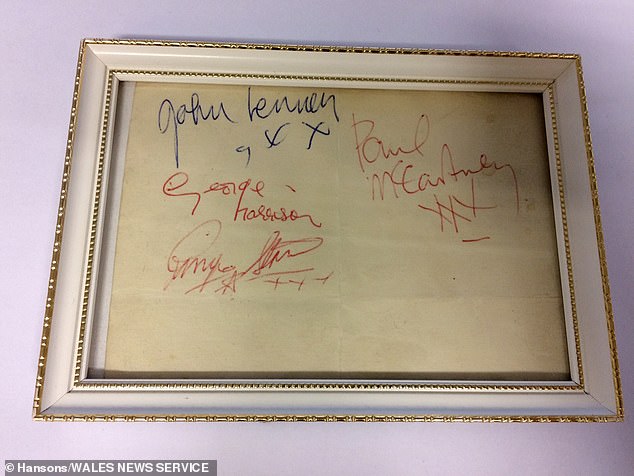 John Lennon
x x
Paul
McCartney
XXX
George
Harrison
Ringo Starr
xxx
© Hansons/WALES NEWS SERVICE